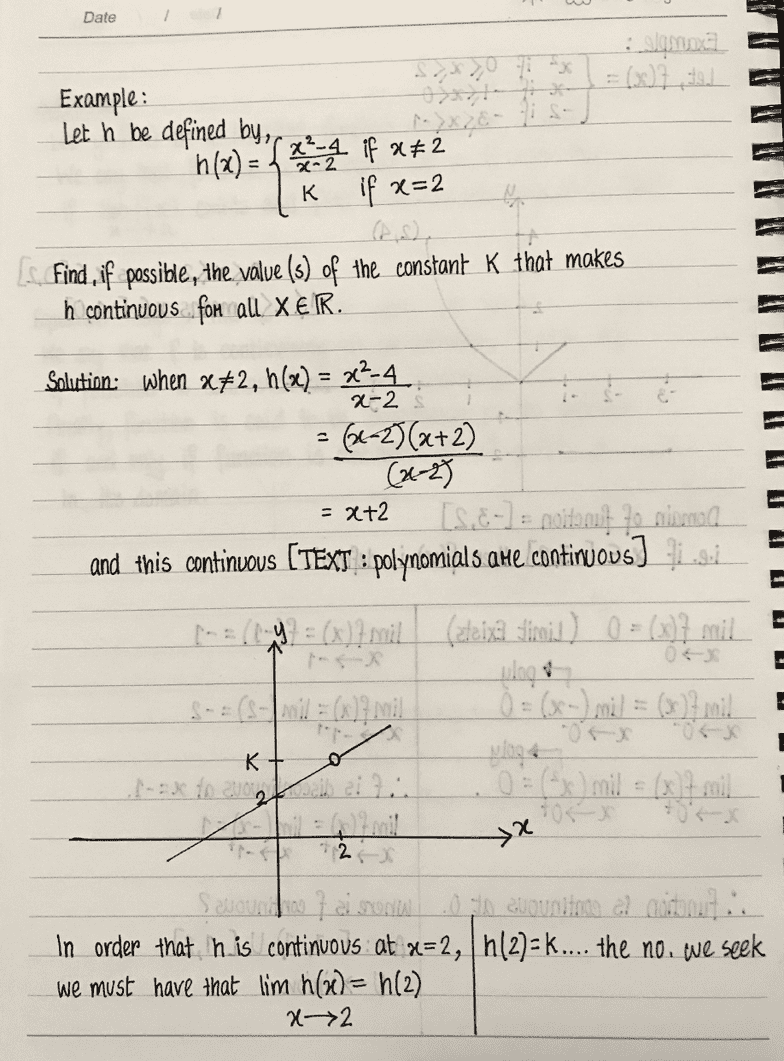 Date / /
Example:
Let h be defined by,
h(x) = { x²-4 / x-2 if x≠2
K if x=2
Find, if possible, the value(s) of the constant K that makes
h continuous for all X∈ℝ.
Solution: when x≠2, h(x) = x²-4 / x-2
= (x-2)(x+2) / (x-2)
= x+2
and this continuous [TEXT : polynomials are continuous]
y
K
2
x
2
In order that h is continuous at x=2,
we must have that lim h(x) = h(2)
x→2
h(2)=K.... the no. we seek